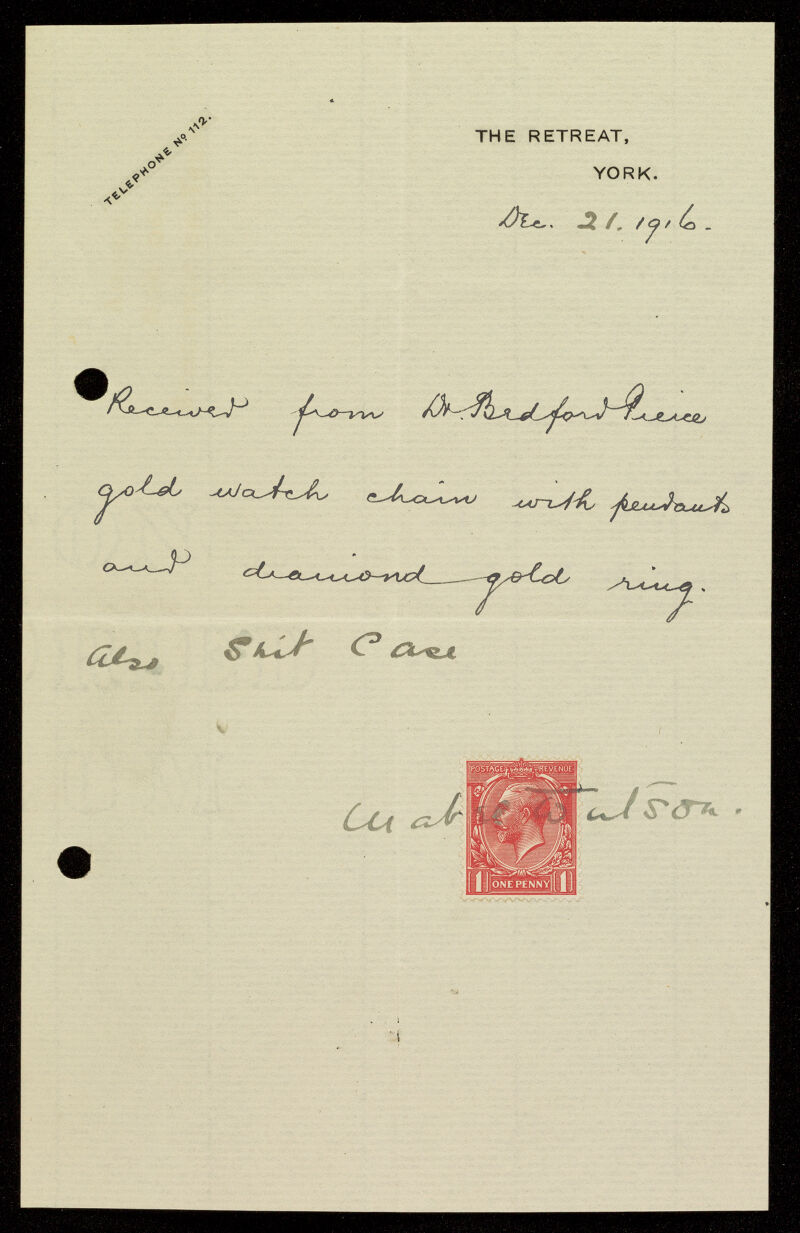 TELEPHONE Nº 112.
THE RETREAT,
YORK.
Dec. 21. 1916.
Received from Dr. Bedford Pierce
gold watch chain with pendants
and diamond gold ring.
Also Suit Case
Mabel Watson.
POSTAGE REVENUE
1 ONE PENNY 1